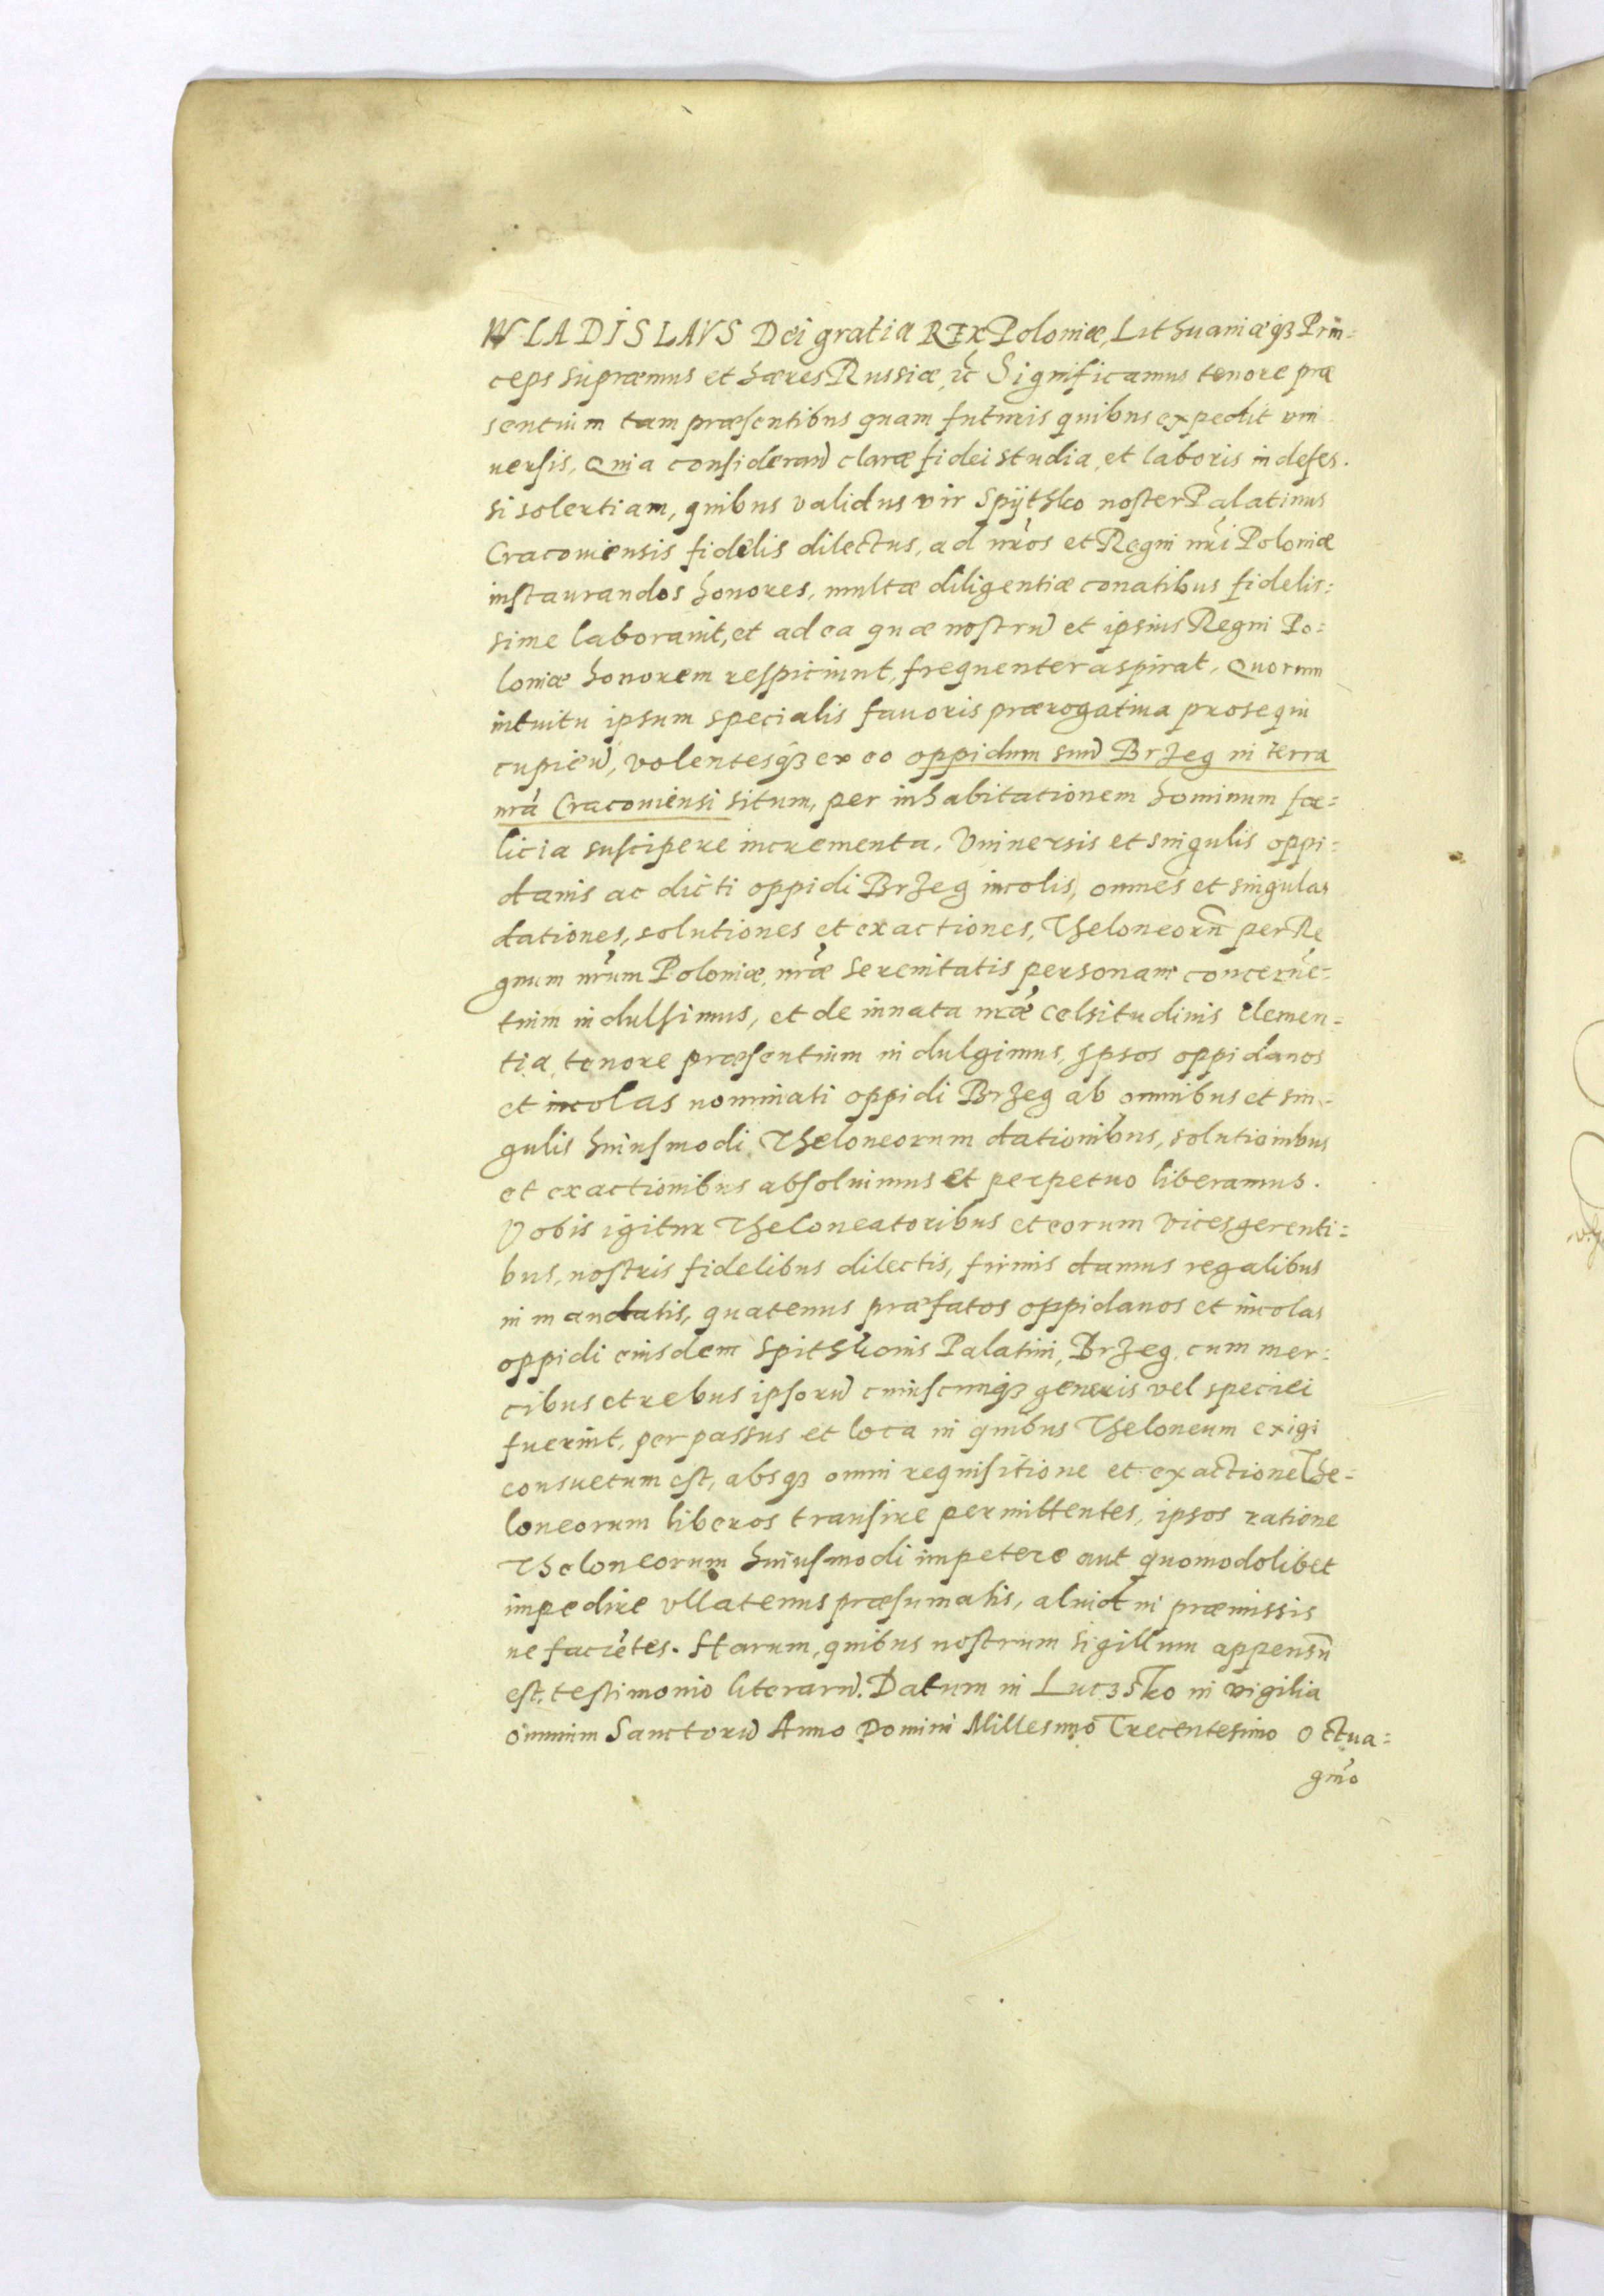 WLADISLAVS Dei gratia REX Poloniæ, Lithuaniæqꝫ Prin=
ceps supræmus et hæres Russiæ ꝛc̃ Significamus tenore præ
sentium tam præsentibus quam futuris quibus expedit vni
uersis, Quia considerañ claræ fidei studia, et laboris indefes.
si solertiam, quibus validus vir Spijthko noster Palatinus
Cracouiensis fidelis dilectus, ad nr̃os et Regni nr̃i Poloniæ
instaurandos honores, multæ diligentiæ conatibus fidelis=
sime laborauit, et ad ea quæ nostrũ et ipsius Regni Po=
loniæ honorem respiciunt, frequenter aspirat, Quorum
intuitu ipsum specialis fauoris prærogatiua prosequi
cupieñ, volentesqꝫ ex eo oppidum suũ Brzeg in terra
nr̃a Cracouiensi situm, per inhabitationem hominum fœ=
licia suscipere incrementa, Vniuersis et singulis oppi=
danis ac dicti oppidi Brzeg incolis, omnes et singulas
dationes, solutiones et exactiones, Theloneorũ per Re
gnum nr̃um Poloniæ, nr̃æ serenitatis personam concernẽ=
tium indulsimus, et de innata nr̃æ celsitudinis clemen=
tia, tenore præsentium indulgimus, Ipsos oppidanos
et incolas nominati oppidi Brzeg ab omnibus et sin=
gulis huiusmodi Theloneorum dationibus, solutionibus
et exactionibus absoluimus et perpetuo liberamus.
Vobis igitur Theloneatoribus et eorum vicesgerenti=
bus, nostris fidelibus dilectis, firmis damus regalibus
in mandatis, quatenus præfatos oppidanos et incolas
oppidi eiusdem Spithkonis Palatini, Brzeg, cum mer=
cibus et rebus ipsorũ cuiuscunqꝫ generis vel speciei
fuerint, per passus et loca in quibus Theloneum exigi
consuetum est, absqꝫ omni requisitione et exactione The=
loneorum liberos transire permittentes, ipsos ratione
Theloneorum huiusmodi impetere aut quomodolibet
impedire vllatenus præsumatis, aluid in præmissis
ne faciẽtes. Harum, quibus nostrum sigillum appensũ
est, testimonio literarũ. Datum in Luczsko in vigilia
omnium Sanctorũ Anno Domini Millesimo Trecentesimo Octua=
gm̃o